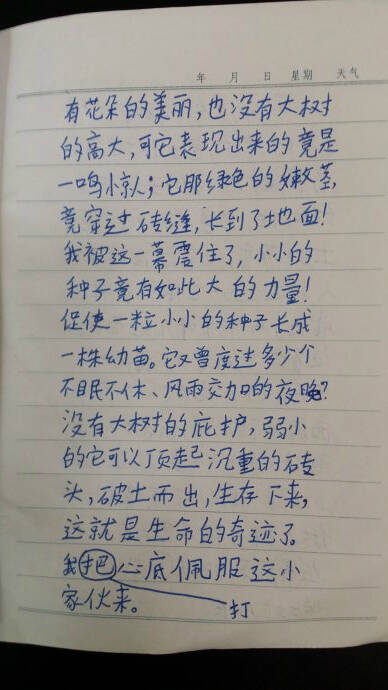 年 月 日 星期 天气
有花朵的美丽,也没有大树
的高大,可它表现出来的竟是
一鸣惊人;它那绿色的嫩茎,
竟穿过砖缝,长到了地面!
我被这一幕震住了,小小的
种子竟有如此大的力量!
促使一粒小小的种子长成
一株幼苗。它又曾度过多少个
不眠不休、风雨交加的夜晚?
没有大树的庇护,弱小
的它可以顶起沉重的砖
头,破土而出,生存下来,
这就是生命的奇迹了。
我把心底佩服这小
家伙来。
打